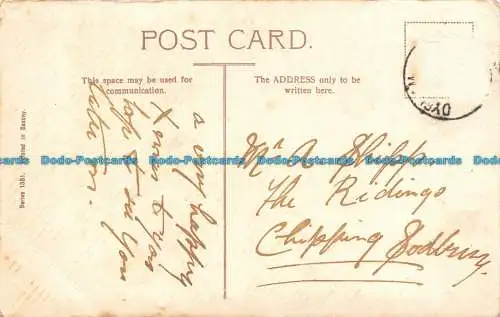 POST CARD.
This space may be used for
communication.
The ADDRESS only to be
written here.
a very happy
Xmas to you
hope to see you
later on.
Mr A Shipp
The Ridings
Chipping Sodbury
Series 1351.
Printed in Saxony.
Dodo-Postcards Dodo-Postcards Dodo-Postcards Dodo-Postcards